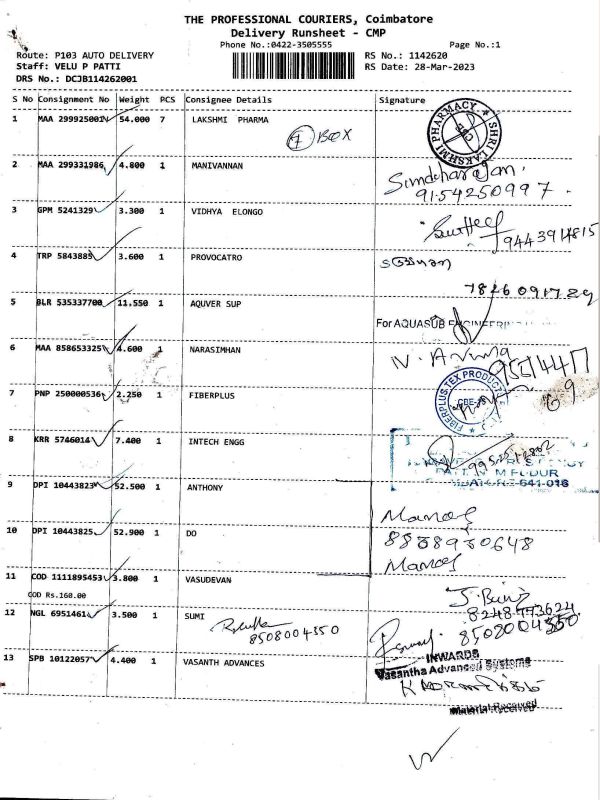 THE PROFESSIONAL COURIERS, Coimbatore
Delivery Runsheet - CMP
Phone No.:0422-3505555 Page No.:1
Route: P103 AUTO DELIVERY RS No.: 1142620
Staff: VELU P PATTI RS Date: 28-Mar-2023
DRS No.: DCJB114262001
S No Consignment No Weight PCS Consignee Details Signature
1 MAA 299925001 54.000 7 LAKSHMI PHARMA
7 BOX
SHRI LAKSHMI PHARMACY
2 MAA 299331986 4.800 1 MANIVANNAN
9154250997
3 GPM 5241329 3.300 1 VIDHYA ELONGO
9443914815
4 TRP 5843885 3.600 1 PROVOCATRO
5 BLR 535337700 11.550 1 AQUVER SUP
For AQUASUB ENGINEERING
6 MAA 858653325 4.600 1 NARASIMHAN
7 PNP 250000536 2.250 1 FIBERPLUS
FIBERPLUS TEX PRODUCTS
8 KRR 5746014 7.400 1 INTECH ENGG
641-016
9 DPI 10443823 52.500 1 ANTHONY
Manoj
10 DPI 10443825 52.900 1 DO
8838930648
Manoj
11 COD 1111895453 3.800 1 VASUDEVAN
COD Rs.160.00
8248773624
12 NGL 6951461 3.500 1 SUMI
8508004350
8508004350
13 SPB 10122057 4.400 1 VASANTH ADVANCES
INWARDS
Vasantha Advanced Systems
Material Received